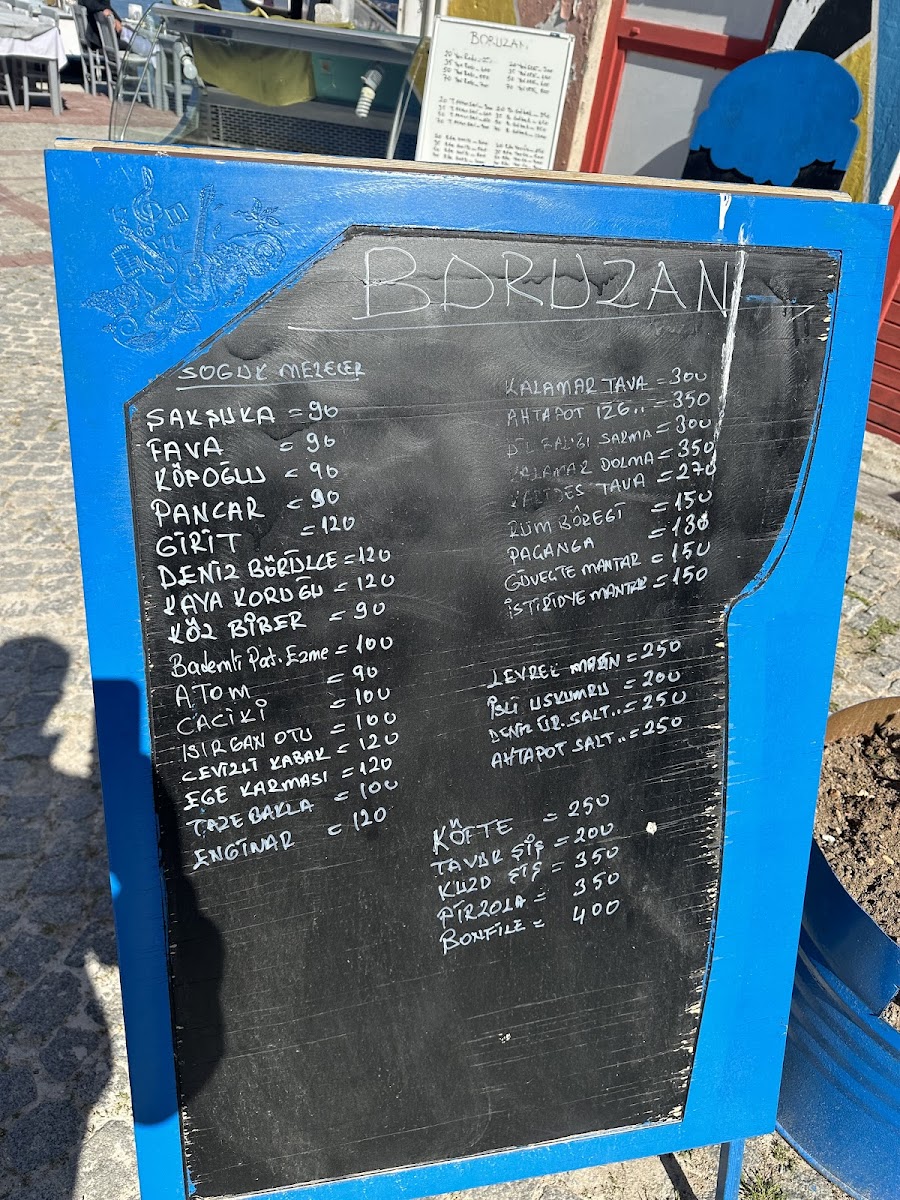 BORUZAN
BORUZAN
SOĞUK MEZELER
SAKŞUKA = 90
FAVA = 90
KÖPOĞLU = 90
PANCAR = 90
GİRİT = 120
DENİZ BÖRÜLCE = 120
KAYA KORUĞU = 120
KÖZ BİBER = 90
Bademli Pat. Ezme = 100
ATOM = 90
CACİKİ = 100
ISIRGAN OTU = 100
CEVİZLİ KABAK = 120
EGE KARMASI = 120
TAZE BAKLA = 100
ENGİNAR = 120
KALAMAR TAVA = 300
AHTAPOT IZG.. = 350
DİL BALIĞI SARMA = 300
KALAMAR DOLMA = 350
KARİDES TAVA = 270
RUM BÖREĞİ = 150
PAÇANGA = 130
GÜVEÇTE MANTAR = 150
İSTİRİDYE MANTAR = 150
LEVREK MARİN = 250
İSLİ USKUMRU = 200
DENİZ ÜR. SALT.. = 250
AHTAPOT SALT.. = 250
KÖFTE = 250
TAVUK ŞİŞ = 200
KUZU ŞİŞ = 350
PİRZOLA = 350
BONFİLE = 400